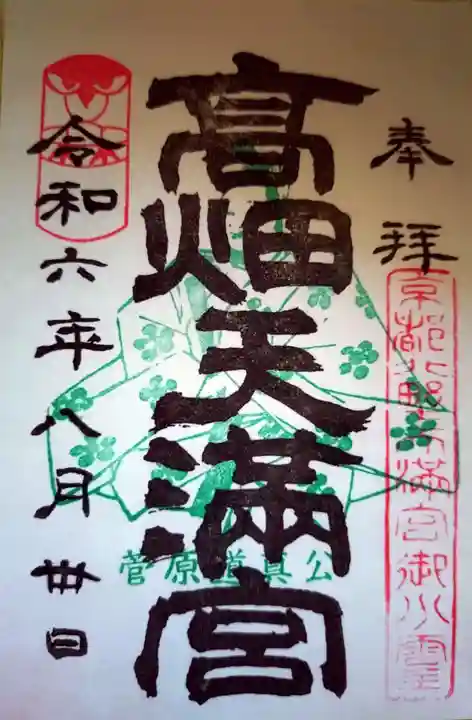 奉拝
京都北野天満宮御分霊
高畑天満宮
菅原道真公
令和六年八月卅日